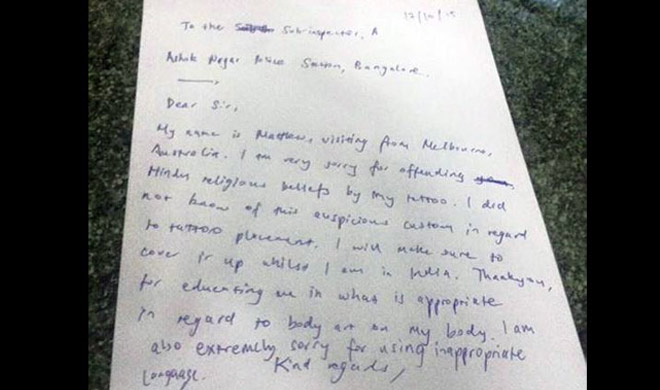 17/10/15
To the Sub inspector, A
Ashok Nagar Police Station, Bangalore.
Dear Sir,
My name is Matthew, visiting from Melbourne,
Australia. I am very sorry for offending
Hindu religious beliefs by my tattoo. I did
not know of this auspicious custom in regard
to tattoo placement. I will make sure to
cover it up whilst I am in India. Thankyou,
for educating me in what is appropriate
in regard to body art on my body. I am
also extremely sorry for using inappropriate
language. Kind regards,